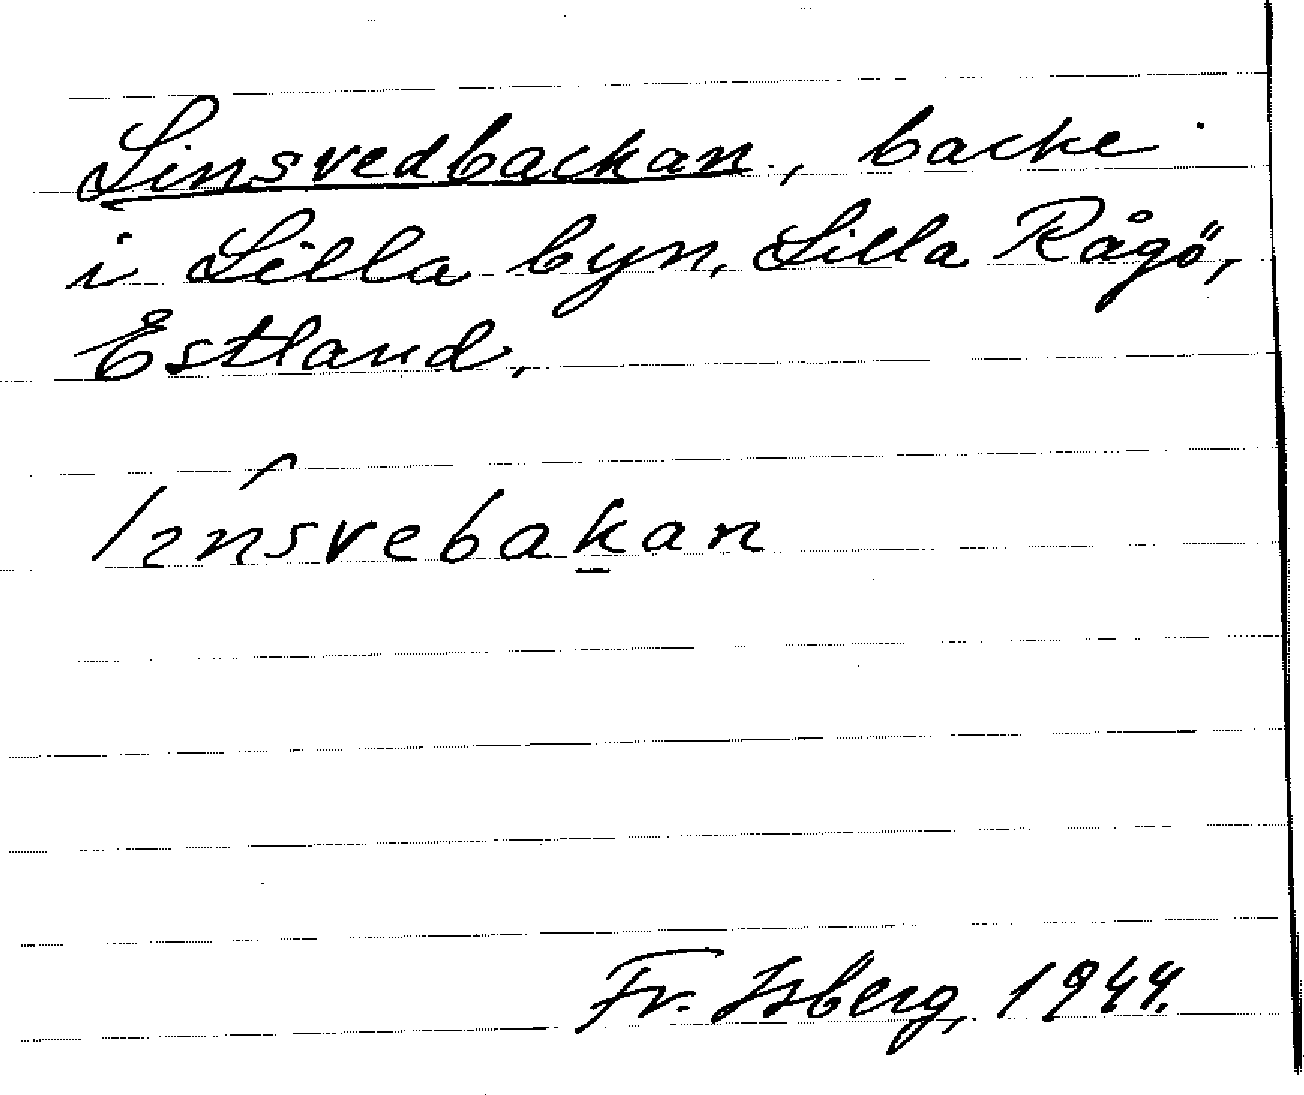 Linsvedbackan, backe
i Lilla byn, Lilla Rågö,
Estland.
lɪnsvebakan
Fr. Isberg, 1944.